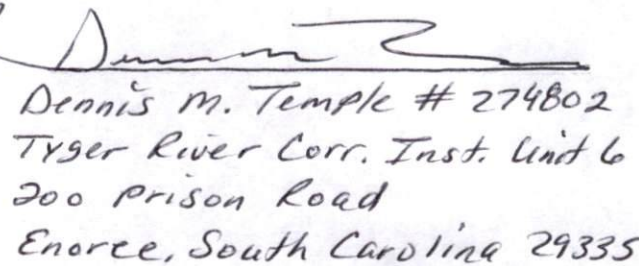 Dennis M. Temple # 274802
Tyger River Corr. Inst. Unit 6
200 Prison Road
Enoree, South Carolina 29335